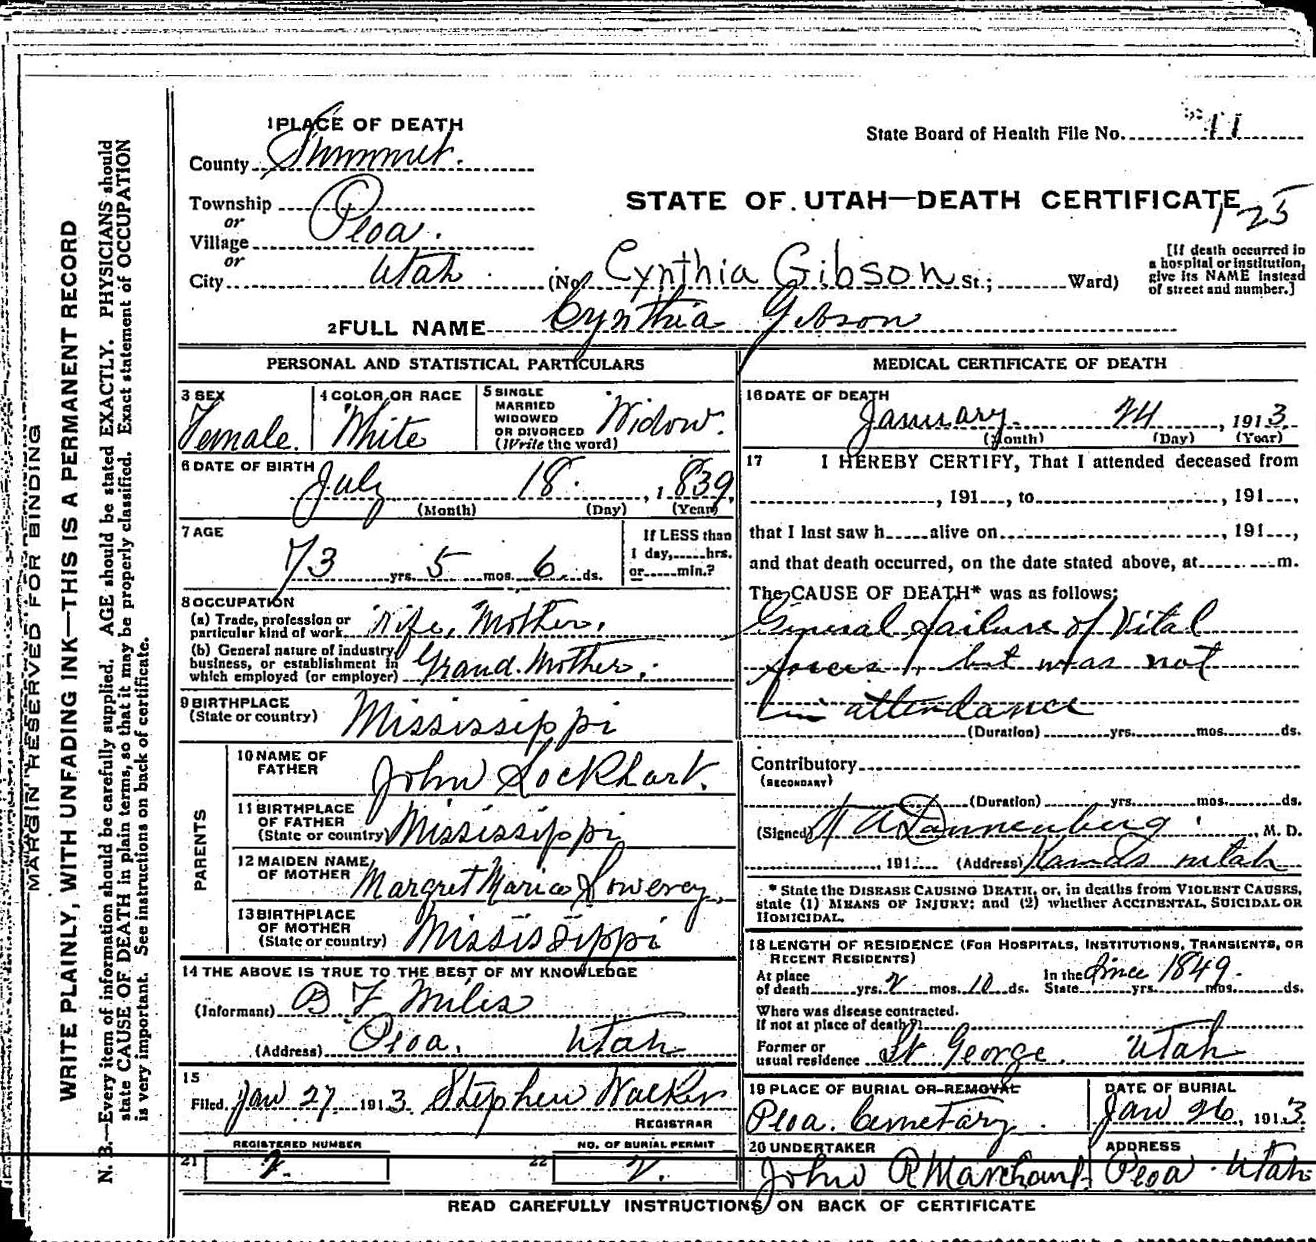 MARGIN RESERVED FOR BINDING
WRITE PLAINLY, WITH UNFADING INK—THIS IS A PERMANENT RECORD
N. B.—Every item of information should be carefully supplied. AGE should be stated EXACTLY. PHYSICIANS should
state CAUSE OF DEATH in plain terms, so that it may be properly classified. Exact statement of OCCUPATION
is very important. See instructions on back of certificate.
1 PLACE OF DEATH
County Summit.
Township
or
Village Peoa.
or
City Utah
State Board of Health File No. 11
STATE OF UTAH—DEATH CERTIFICATE
125
(No. Cynthia Gibson St.; Ward)
[If death occurred in
a hospital or institution,
give its NAME instead
of street and number.]
2 FULL NAME Cynthia Gibson
PERSONAL AND STATISTICAL PARTICULARS
3 SEX
Female.
4 COLOR OR RACE
White
5 SINGLE
MARRIED
WIDOWED
OR DIVORCED
(Write the word)
Widow.
6 DATE OF BIRTH
July 18. , 1839
(Month) (Day) (Year)
7 AGE
73 yrs. 5 mos. 6 ds.
If LESS than
1 day, hrs.
or min.?
8 OCCUPATION
(a) Trade, profession or
particular kind of work Wife, Mother,
(b) General nature of industry,
business, or establishment in
which employed (or employer) Grand Mother.
9 BIRTHPLACE
(State or country) Mississippi
PARENTS
10 NAME OF
FATHER John Lockhart.
11 BIRTHPLACE
OF FATHER
(State or country) Mississippi
12 MAIDEN NAME
OF MOTHER Margret Maria
13 BIRTHPLACE
OF MOTHER
(State or country) Mississippi
14 THE ABOVE IS TRUE TO THE BEST OF MY KNOWLEDGE
(Informant) B F Miles
(Address) Peoa. Utah
15
Filed Jan 27 1913 Stephen Walker
REGISTRAR
REGISTERED NUMBER
21 2.
NO. OF BURIAL PERMIT
22 2.
MEDICAL CERTIFICATE OF DEATH
16 DATE OF DEATH
January. 24 , 1913
(Month) (Day) (Year)
17 I HEREBY CERTIFY, That I attended deceased from
, 191 , to , 191 ,
that I last saw h alive on , 191 ,
and that death occurred, on the date stated above, at m.
The CAUSE OF DEATH* was as follows:
General failure of Vital
forces, but was not
in attendance
(Duration) yrs. mos. ds.
Contributory
(SECONDARY)
(Duration) yrs. mos. ds.
(Signed) Dannenberg , M. D.
, 191 (Address) Kamas Utah
* State the DISEASE CAUSING DEATH, or, in deaths from VIOLENT CAUSES,
state (1) MEANS OF INJURY; and (2) whether ACCIDENTAL, SUICIDAL OR
HOMICIDAL.
18 LENGTH OF RESIDENCE (FOR HOSPITALS, INSTITUTIONS, TRANSIENTS, OR
RECENT RESIDENTS)
At place
of death yrs. 2 mos. 10 ds.
In the
State Since 1849. yrs. mos. ds.
Where was disease contracted.
If not at place of death?
Former or
usual residence St George. Utah
19 PLACE OF BURIAL OR REMOVAL
Peoa. Cemetary.
DATE OF BURIAL
Jan 26, 1913.
20 UNDERTAKER
John R Marchant.
ADDRESS
Peoa Utah
READ CAREFULLY INSTRUCTIONS ON BACK OF CERTIFICATE